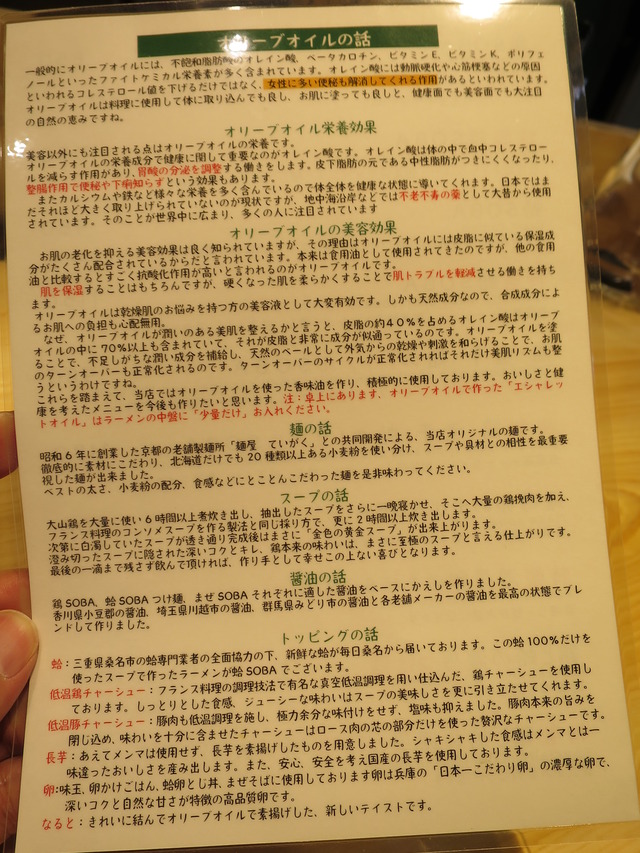 オリーブオイルの話
一般的にオリーブオイルには、不飽和脂肪酸のオレイン酸、ベータカロチン、ビタミンE、ビタミンK、ポリフェ
ノールといったファイトケミカル栄養素が多く含まれています。オレイン酸には動脈硬化や心筋梗塞などの原因
といわれるコレステロール値を下げるだけではなく、女性に多い便秘も解消してくれる作用があるといわれています。
オリーブオイルは料理に使用して体に取り込んでも良し、お肌に塗っても良しと、健康面でも美容面でも大注目
の自然の恵みですね。
オリーブオイル栄養効果
美容以外にも注目される点はオリーブオイルの栄養です。
オリーブオイルの栄養成分で健康に関して重要なのがオレイン酸です。オレイン酸は体の中で血中コレステロー
ルを減らす作用があり、胃酸の分泌を調整する働きをします。皮下脂肪の元である中性脂肪がつきにくくなったり、
整腸作用で便秘や下痢知らずという効果もあります。
またカルシウムや鉄など様々な栄養を多く含んでいるので体全体を健康な状態に導いてくれます。日本ではま
だそれほど大きく取り上げられていないのが現状ですが、地中海沿岸などでは不老不毒の薬として大昔から使用
されています。そのことが世界中に広まり、多くの人に注目されています
オリーブオイルの美容効果
お肌の老化を抑える美容効果は良く知られていますが、その理由はオリーブオイルには皮脂に似ている保湿成
分がたくさん配合されているからだと言われています。本来は食用油として使用されてきたのですが、他の食用
油と比較するとすごく抗酸化作用が高いと言われるのがオリーブオイルです。
肌を保湿することはもちろんですが、硬くなった肌を柔らかくすることで肌トラブルを軽減させる働きを持ち
ます。
オリーブオイルは乾燥肌のお悩みを持つ方の美容液として大変有効です。しかも天然成分なので、合成成分によ
るお肌への負担も心配無用。
なぜ、オリーブオイルが潤いのある美肌を整えるかと言うと、皮脂の約40%を占めるオレイン酸はオリーブ
オイルの中に70%以上も含まれていて、それが皮脂と非常に成分が似通っているのです。オリーブオイルを塗
ることで、不足しがちな潤い成分を補給し、天然のベールとして外気からの乾燥や刺激を和らげることで、お肌
のターンオーバーも正常化されるのです。ターンオーバーのサイクルが正常化されればそれだけ美肌リズムも整
うというわけですね。
これらを踏まえて、当店ではオリーブオイルを使った香味油を作り、積極的に使用しております。おいしさと健
康を考えたメニューを今後も作りたいと思います。注：卓上にあります、オリーブオイルで作った「エシャレッ
トオイル」はラーメンの中盤に「少量だけ」お入れください。
麺の話
昭和6年に創業した京都の老舗製麺所「麺屋　ていがく」との共同開発による、当店オリジナルの麺です。
徹底的に素材にこだわり、北海道だけでも20種類以上ある小麦粉を使い分け、スープや具材との相性を最重要
視した麺が出来ました。
ベストの太さ、小麦粉の配分、食感などにとことんこだわった麺を是非味わってください。
スープの話
大山鶏を大量に使い6時間以上煮炊き出し、抽出したスープをさらに一晩寝かせ、そこへ大量の鶏挽肉を加え、
フランス料理のコンソメスープを作る製法と同じ採り方で、更に2時間以上炊き出します。
次第に白濁していたスープが透き通り完成後はまさに「金色の黄金スープ」が出来上がります。
澄み切ったスープに隠された深いコクとキレ、鶏本来の味わいは、まさに至極のスープと言える仕上がりです。
最後の一滴まで残さず飲んで頂ければ、作り手として幸せこの上ない喜びとなります。
醤油の話
鶏SOBA、蛤SOBAつけ麺、まぜSOBAそれぞれに適した醤油をベースにかえしを作りました。
香川県小豆郡の醤油、埼玉県川越市の醤油、群馬県みどり市の醤油と各老舗メーカーの醤油を最高の状態でブレ
ンドして作りました。
トッピングの話
蛤：三重県桑名市の蛤専門業者の全面協力の下、新鮮な蛤が毎日桑名から届いております。この蛤100%だけを
使ったスープで作ったラーメンが蛤SOBAでございます。
低温鶏チャーシュー：フランス料理の調理技法で有名な真空低温調理を用い仕込んだ、鶏チャーシューを使用し
ております。しっとりとした食感、ジューシーな味わいはスープの美味しさを更に引き立たせてくれます。
低温豚チャーシュー：豚肉も低温調理を施し、極力余分な味付けをせず、塩味も抑えました。豚肉本来の旨みを
閉じ込め、味わいを十分に含ませたチャーシューはロース肉の芯の部分だけを使った贅沢なチャーシューです。
長芋：あえてメンマは使用せず、長芋を素揚げしたものを用意しました。シャキシャキした食感はメンマとは一
味違ったおいしさを産み出します。また、安心、安全を考え国産の長芋を使用しております。
卵：味玉、卵かけごはん、蛤卵とじ丼、まぜそばに使用しております卵は兵庫の「日本一こだわり卵」の濃厚な卵で、
深いコクと自然な甘さが特徴の高品質卵です。
なると：きれいに結んでオリーブオイルで素揚げした、新しいテイストです。